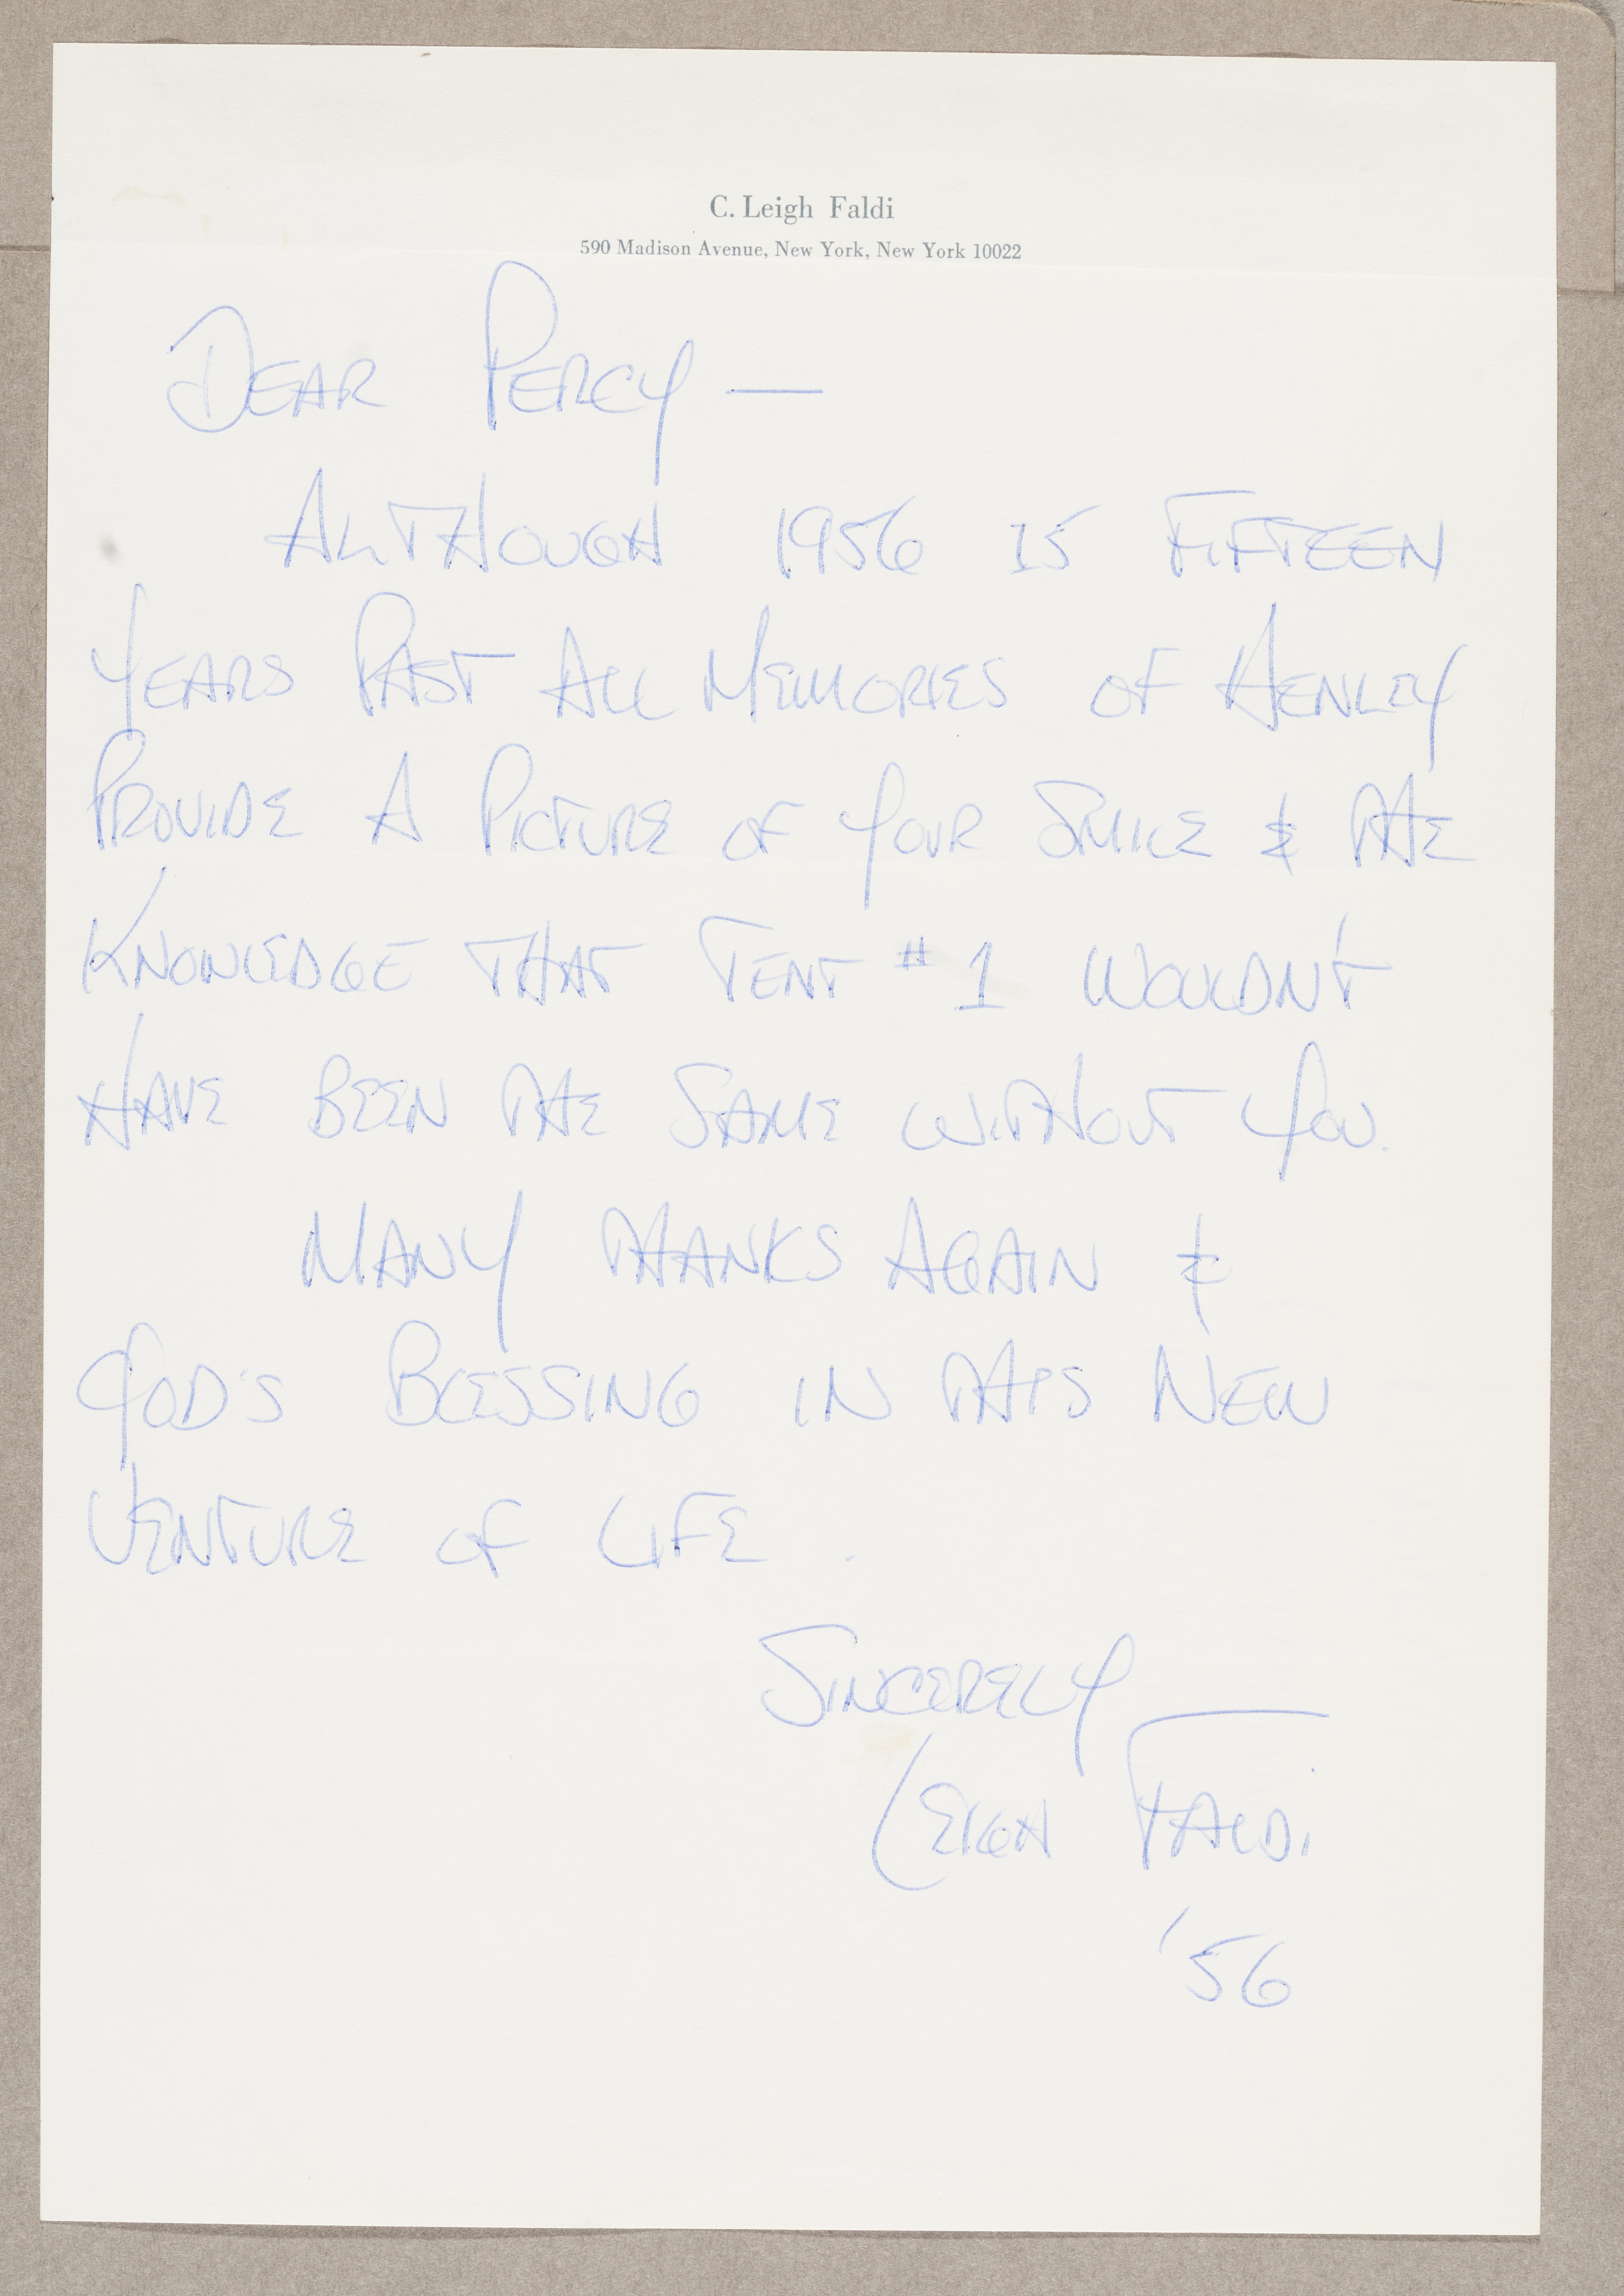 C. Leigh Faldi
590 Madison Avenue, New York, New York 10022
DEAR PERCY —
ALTHOUGH 1956 IS FIFTEEN
YEARS PAST ALL MEMORIES OF HENLEY
PROVIDE A PICTURE OF YOUR SMILE & THE
KNOWLEDGE THAT TENT #1 WOULDN'T
HAVE BEEN THE SAME WITHOUT YOU.
MANY THANKS AGAIN &
GOD'S BLESSING IN THIS NEW
VENTURE OF LIFE.
SINCERELY
LEIGH FALDI
'56